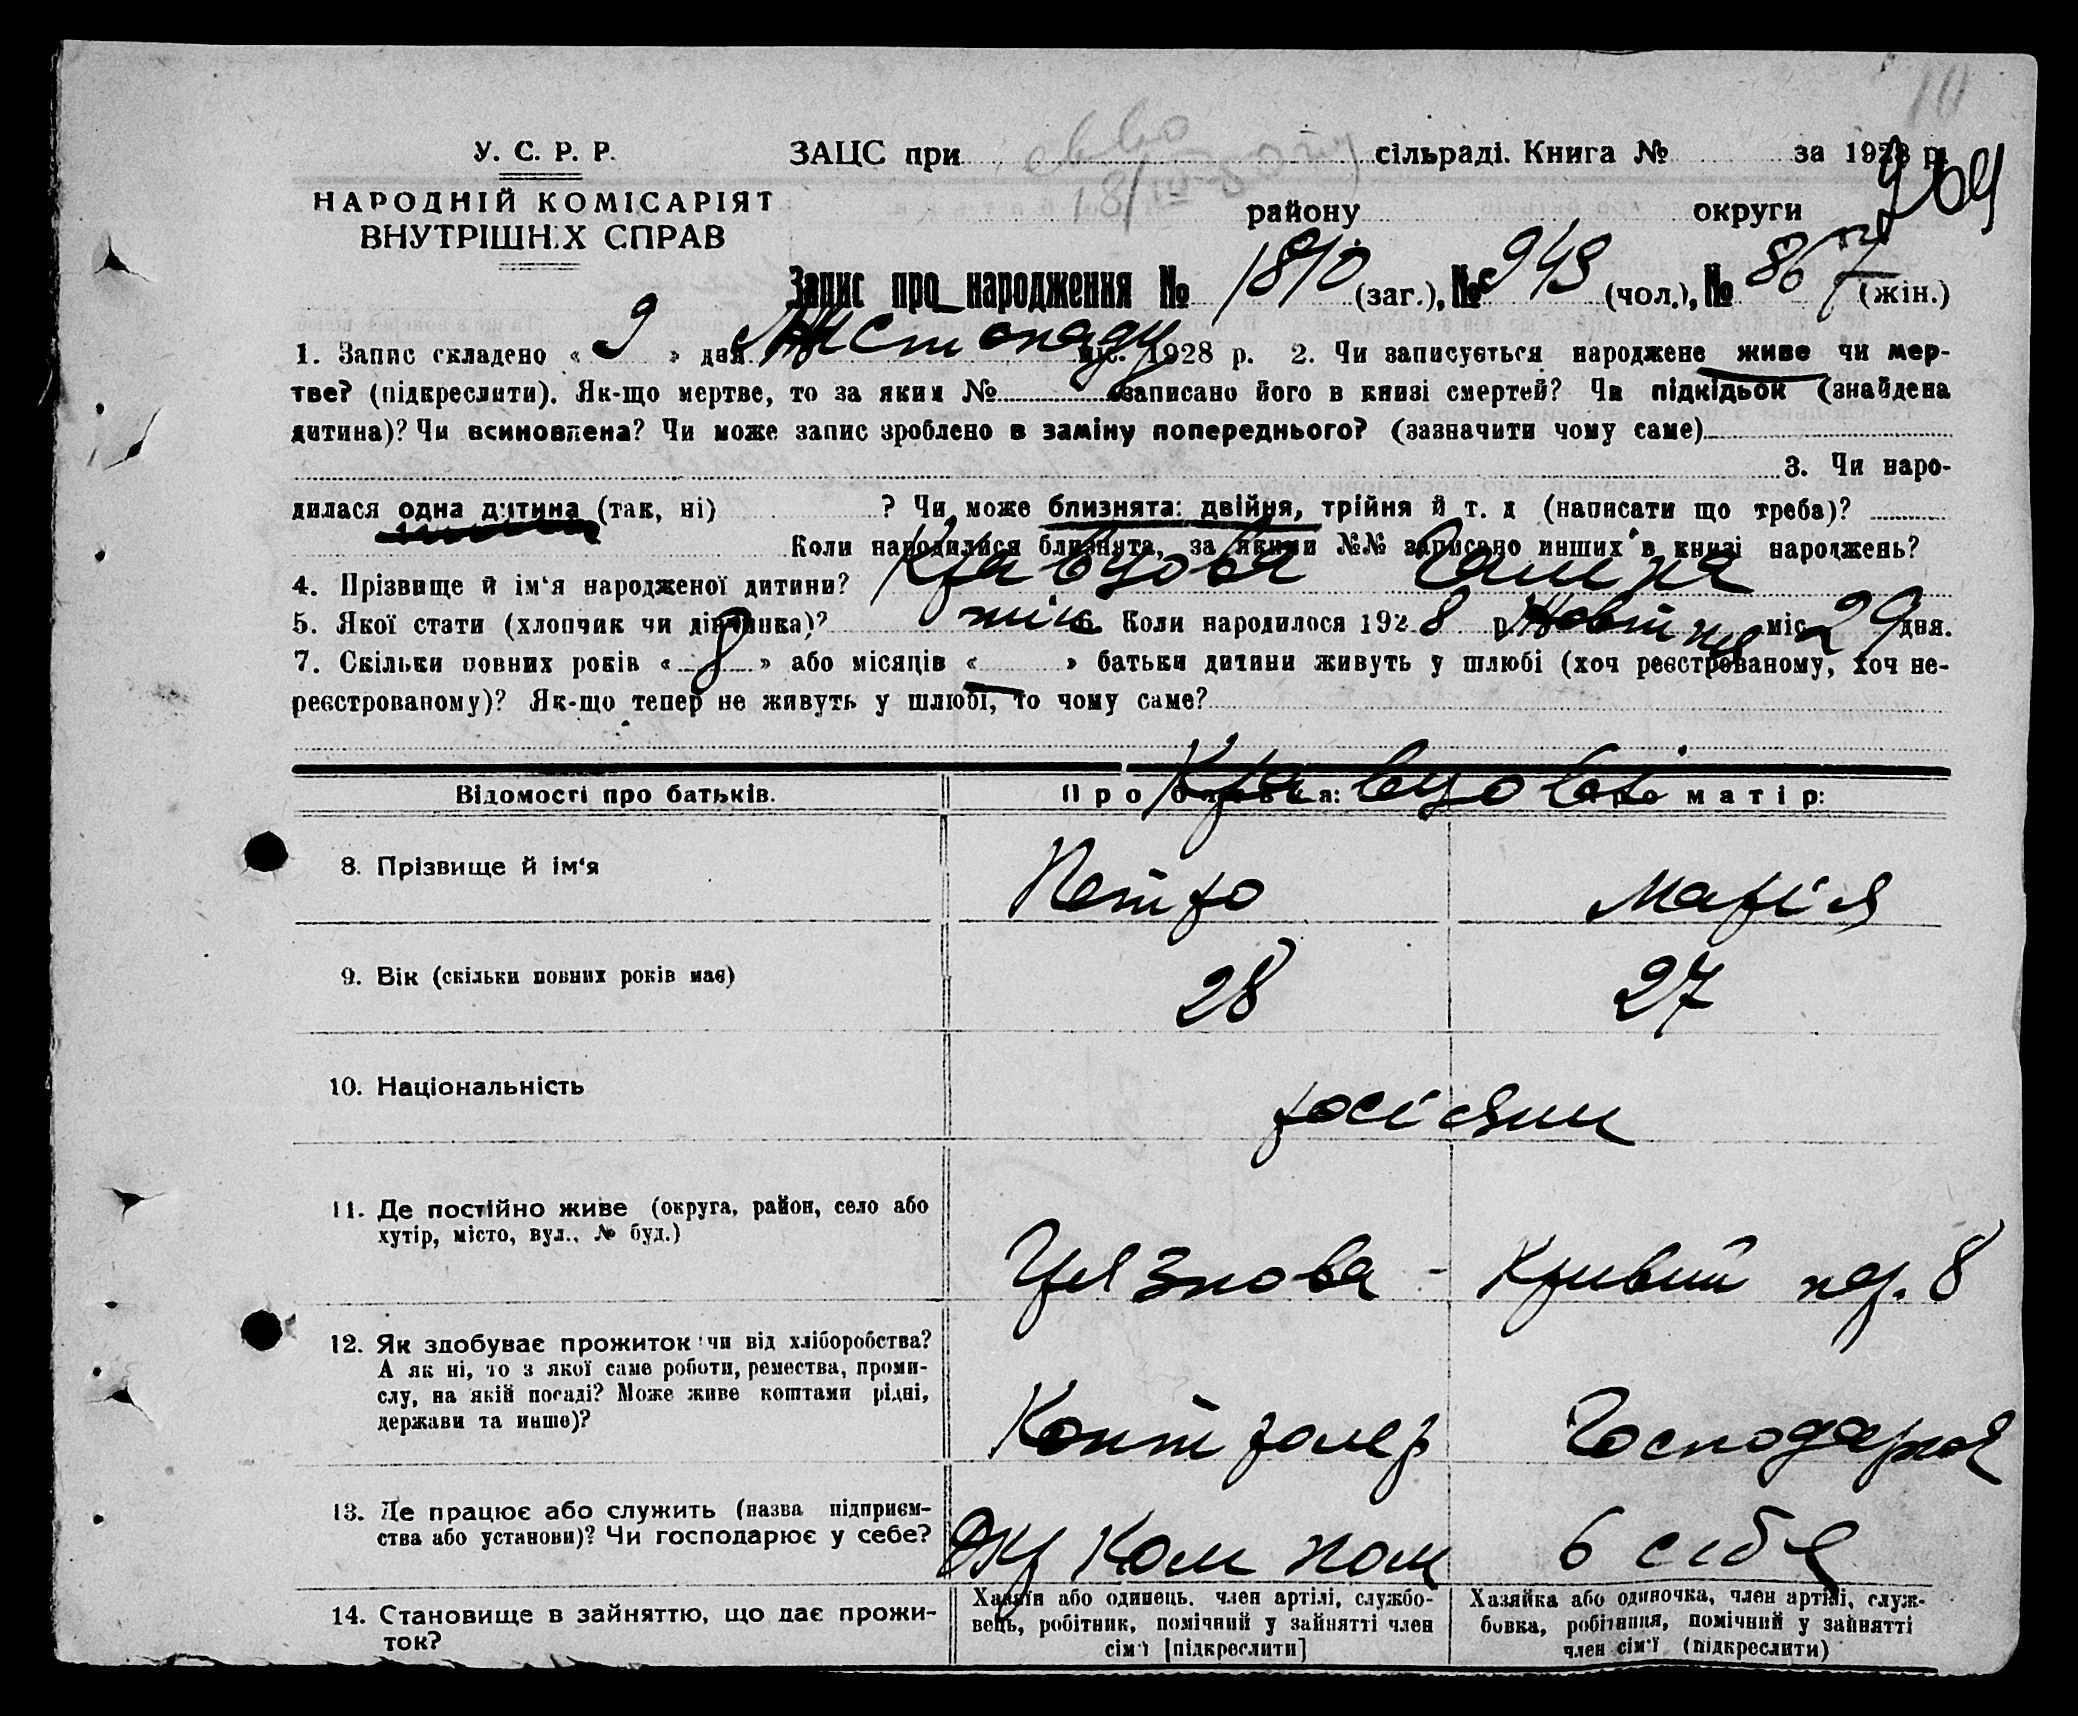 10
У. С. Р. Р. ЗАЦС при сільраді. Книга № за 1928 р.
18/III
НАРОДНІЙ КОМІСАРІЯТ району округи
ВНУТРІШНІХ СПРАВ
Запис про народження № 1810 (заг.), № 943 (чол.), № 867 (жін.)
1. Запис складено « 9 » дня Листопаду міс. 1928 р. 2. Чи записується народжене живе чи мер-
тве? (підкреслити). Як-що мертве, то за яким № записано його в книзі смертей? Чи підкідьок (знайдена
дитина)? Чи всиновлена? Чи може запис зроблено в заміну попереднього? (зазначити чому саме)
3. Чи наро-
дилася одна дитина (так, ні) ? Чи може близнята: двійня, трійня й т. д (написати що треба)?
Коли народилися близнята, за якими №№ записано инших в книзі народжень?
4. Прізвище й ім‘я народженої дитини? Кравцова Галина
5. Якої стати (хлопчик чи дівчинка)? жін 6. Коли народилося 1928 р. Жовтня міс. 29 дня.
7. Скільки повних років « 8 » або місяців « » батьки дитини живуть у шлюбі (хоч реєстрованому, хоч не-
реєстрованому)? Як-що тепер не живуть у шлюбі, то чому саме?
Відомості про батьків. Про батька: Про матір:
Кравцови
8. Прізвище й ім‘я Петро Марія
9. Вік (скільки повних років має) 28 27
10. Національність росіяни
11. Де постійно живе (округа, район, село або
хутір, місто, вул., № буд.) Грязнова - Кривий пер. 8
12. Як здобуває прожиток чи від хліборобства?
А як ні, то з якої саме роботи, ремества, проми-
слу, на якій посаді? Може живе коштами рідні,
держави та инше)? Контролер Господарка
13. Де працює або служить (назва підприєм-
ства або установи)? Чи господарює у себе? в себе
14. Становище в зайняттю, що дає прожи-
ток?
Хазяїн або одинець, член артілі, службо-
вець, робітник, помічний у зайнятті член
сім‘ї [підкреслити]
Хазяйка або одиночка, член артілі, служ-
бовка, робітниця, помічний у зайнятті
член сім‘ї (підкреслити)